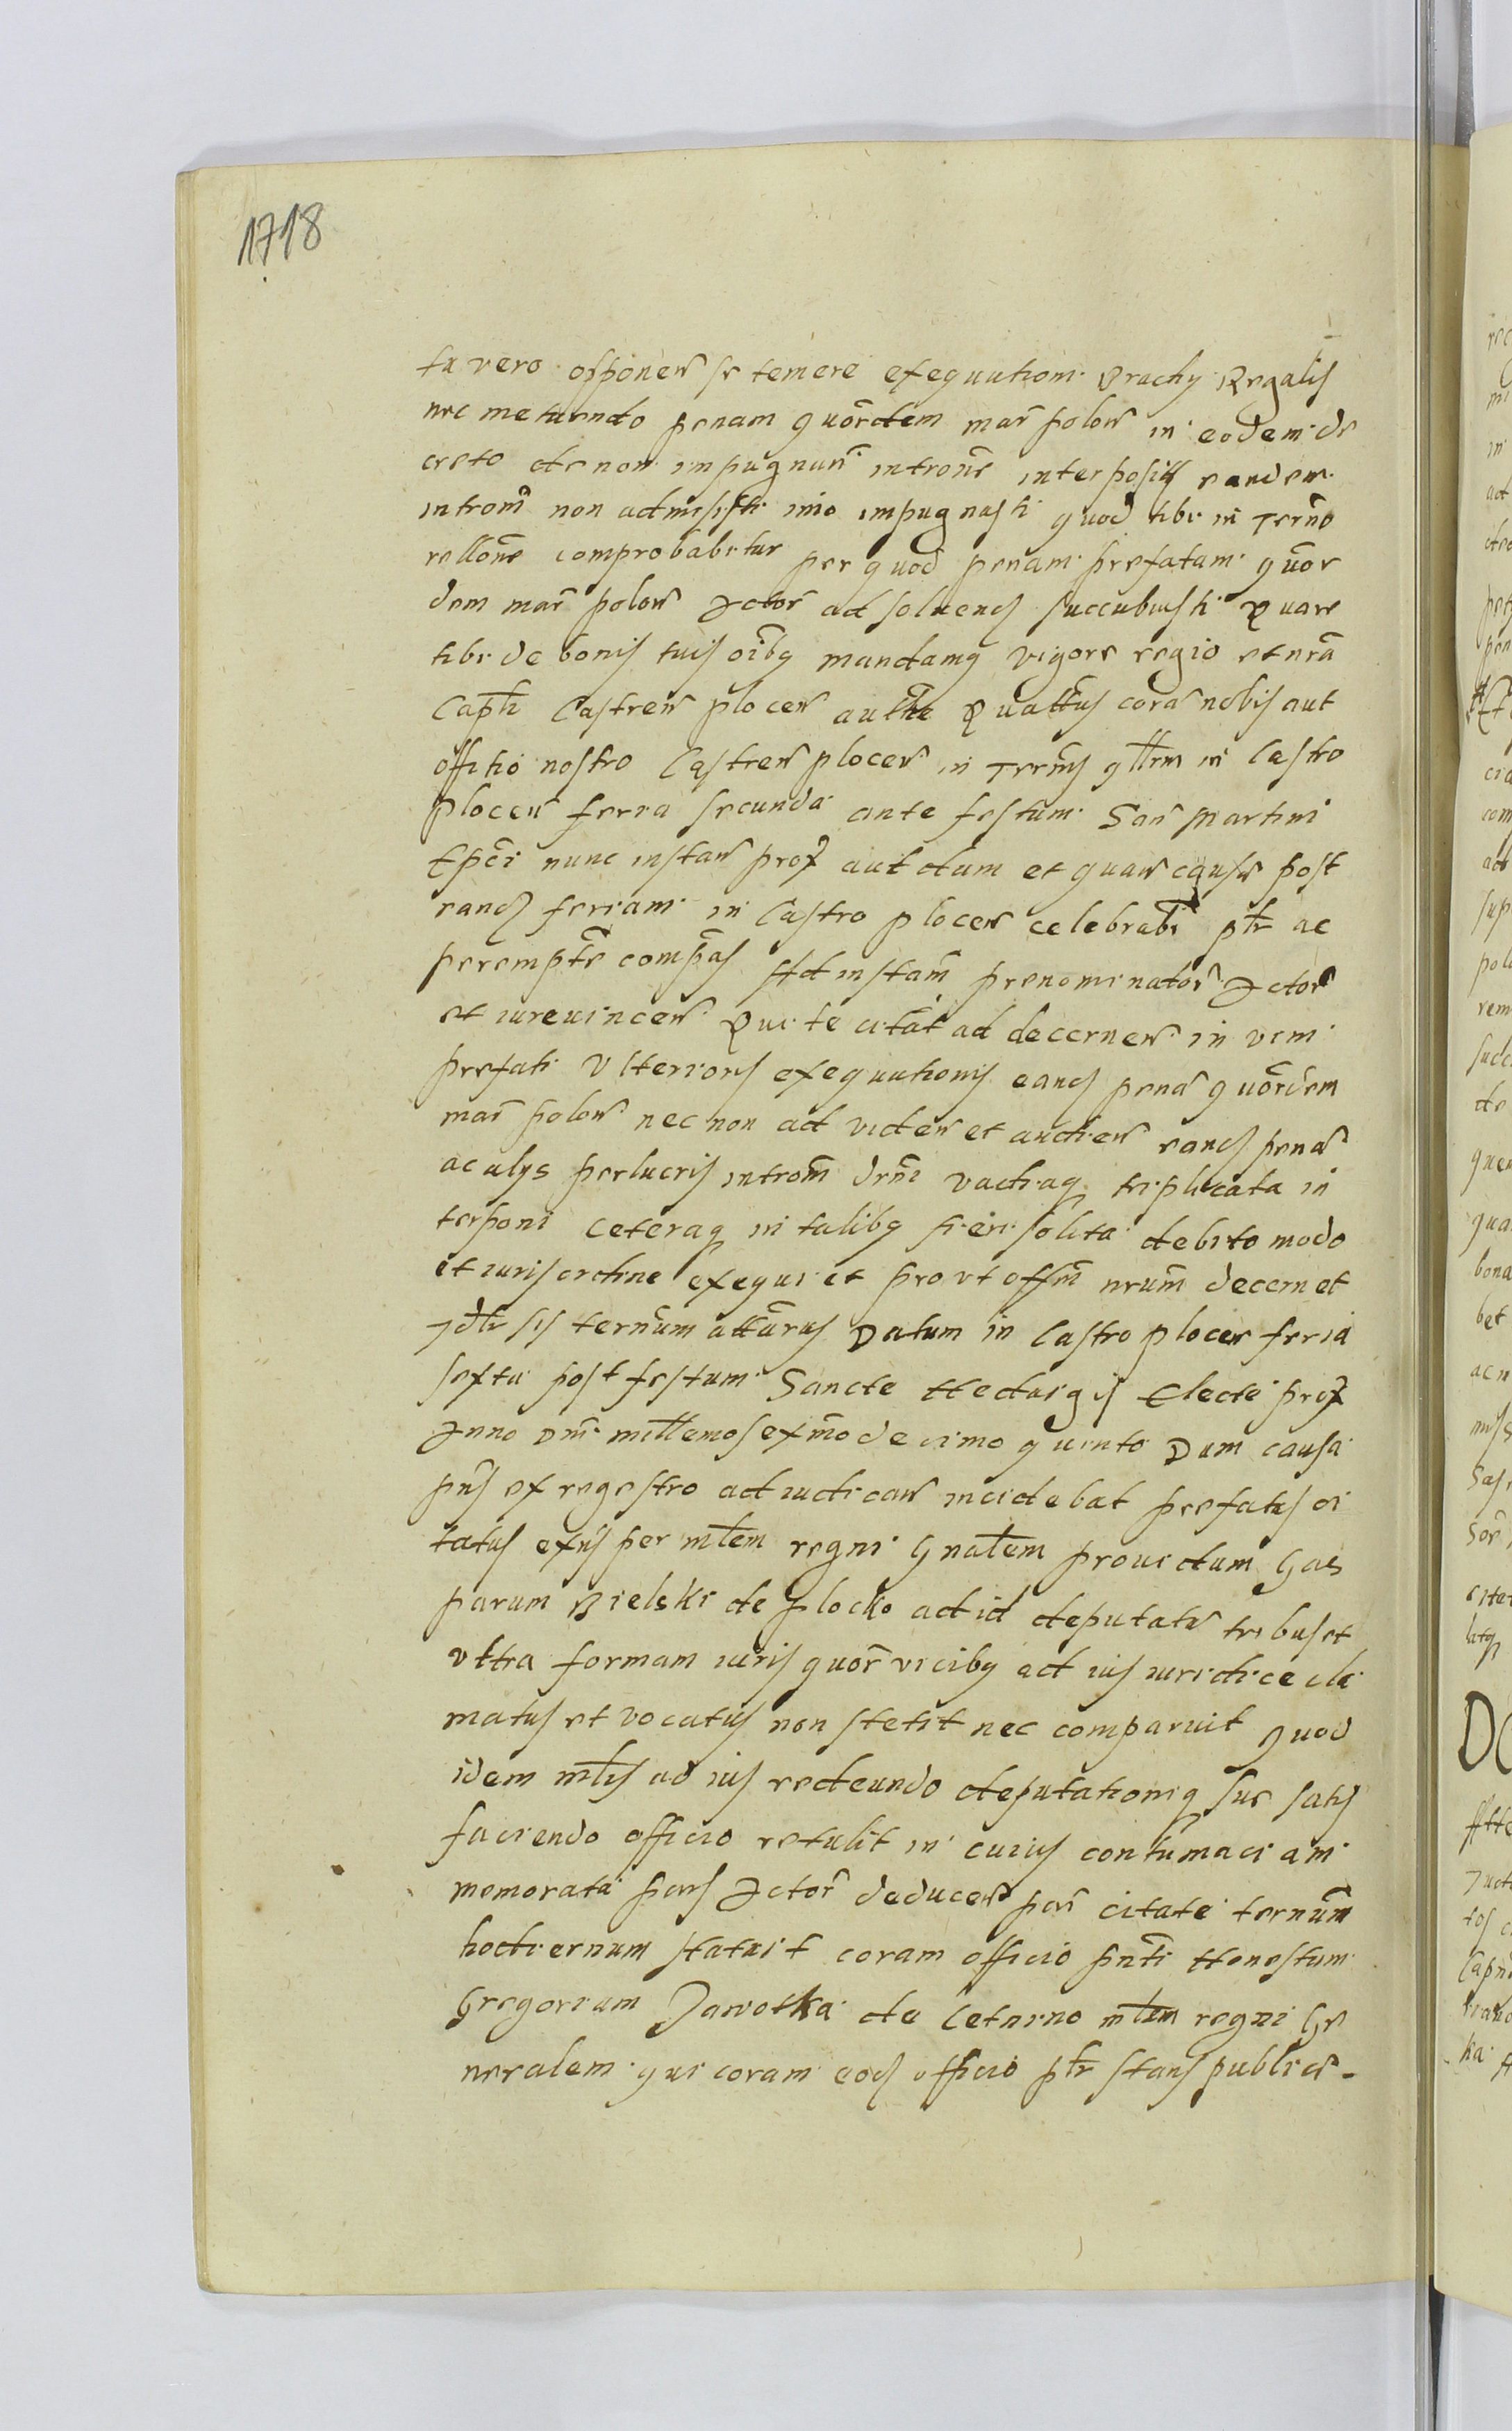 1718
tu vero opponen̄ se temere exequutioni Regalis
nec metuendo penam quōrdem mar̄ polon̄ in eodem de
creto de non impugnan̄ introne interposit eandem
introm̄ non admisisti imo impugnasti quod tibi in Ter̄no
rellōne comprobabitur per quod penam prefatam quōr
dem mar̄ polon̄ Actor̄ ad solvend succubuisti Quare
tibi de bonis tuis oībq mandamq vigore regio et nr̄a
Capti Castren̄ plocen̄ authe Quattus corā nobis aut
offitio nostro Castren̄ plocen̄ in Term̄is in Castro
plocen̄ feria secunda ante festum San̄ Martini
Epc̄i nunc instan̄ prox aut dum et quan̄ cause post
eand feriam in Castro plocen̄ celebrabr̄ ptr ac
perempt̄e comp̄as Ad instam̄ prenominator̄ Actor̄
et iurevincen̄ Qui te citat̄ ad decernen̄ in vim
prefati Ulterioris exequutionis eand penā quōrdem
mar̄ polon̄ nec non ad viden̄ et audien̄ eand penā
ac alys perlucris introm̄ vadiaq triplicata in
terponi Ceteraq in talibq fieri solita debito modo
et iuris ordine exequi et pro ut offm̄ nrum̄ decernet
Idtr sis term̄um attūrus Datum in Castro plocen̄ feria
sexta post festum Sancte Heduigis Electe prox
Anno Dni millemosexm̄o decimo quinto Dum causa
pn̄s ex regestro ad iudican̄ incidebat prefatus ci
tatus exn̄s per mtem regni Gnalem providum Gas
parum Bielski de Plocko ad id deputatū tribus et
ultra formam iuris quor̄ vicibq ad ius iuridice cla
matus et vocatus non stetit nec comparuit quod
idem mtis ad ius redeundo deputationiq sue satis
faciendo officio retulit in cuius contumaciam
memorata pars Actor̄ deducen̄ par̄ citate term̄um
hodiernum statuit coram officio pnti Honestum
Gregorium Jawotka de Cetnino mtem regni Ge
neralem qui coram eod officio ptr stans publice-